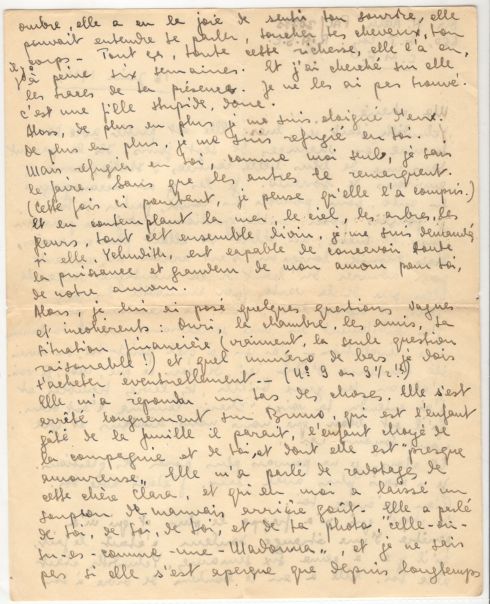 ombre, elle a eu la joie de sentir ton sourire, elle
pouvait entendre te parler, toucher tes cheveux, ton
corps - Tout ça, toute cette richesse, elle l'a eu,
il y a à peine six semaines. Et j'ai cherché sur elle
les traces de ta présence. Je ne les ai pas trouvé.
c'est une fille stupide, donc.
Alors, de plus en plus je me suis éloigné d'eux.
De plus en plus, je me suis refugié en toi.
Mais, refugier en toi, comme moi seul, je sais
le faire. Sans que les autres le remarquent.
(Cette fois ci pourtant, je pense qu'elle l'a compris.)
Et en contemplant la mer, le ciel, les arbres, les
fleurs, tout cet ensemble divin, je me suis demandé
si elle, Yehudith, est capable de concevoir toute
la puissance et grandeur de mon amour pour toi,
de notre amour.
Alors, je lui ai posé quelques questions vagues
et incoherents: Ouri, la chambre, les amis, ta
situation financière (vraiment, la seule question
raisonable!) et quel numéro de bas je dois
t'acheter eventuellement -- (4? 9 ou 9 1/2!?)
Elle m'a répondu un tas des choses. Elle s'est
arrêté longuement sur Bruno, qui est l'enfant
gâté de la famille il parait, l'enfant choyé de
la compagnie et de toi, et dont elle est "presque
amoureuse". Elle m'a parlé de radotages de
cette chère Clara, et qui en moi a laissé un
soupçon de mauvais arrière goût. Elle a parlé
de toi, de toi, de toi, et de ta photo "celle-où-
tu-es-comme-une-Madonna", et je ne sais
pas si elle s'est aperçue que depuis longtemps